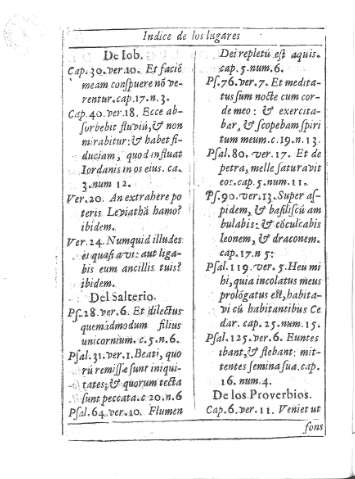 Indice de los lugares
De Iob.
Cap. 30. ver. 10. Et facié
meam conspuere nõ ve-
rentur. cap. 17. n. 3.
Cap. 40. ver. 18. Ecce ab-
sorbebit fluviũ, & non
mirabitur: & habet fi-
duciam, quod influat
Iordanis in os eius. ca.
3. num 12.
Ver. 20. An extrahere po
teris Leviathã hamo?
ibidem.
Ver. 24. Numquid illudes
ei quasi avi: aut liga-
bis eum ancillis tuis?
ibidem.
Del Salterio.
Ps. 28. ver. 6. Et dilectus
quemadmodum filius
unicornium. c. 5. n. 6.
Psal. 31. ver. 1. Beati, quo
rũ remissæ sunt iniqui-
tates; & quorum tecta
sunt peccata. c 20. n. 6
Psal. 64. ver. 10. Flumen
Dei repletũ est aquis.
cap. 5. num. 6.
Ps. 76. ver. 7. Et medita-
tus sum nocte cum cor-
de meo: & exercita-
bar, & scopebam spiri
tum meum. c. 19. n. 13.
Psal. 80. ver. 17. Et de
petra, melle saturavit
eos. cap. 5. num. 11.
Ps. 90. ver. 13. Super as-
pidem, & basiliscũ am
bulabis: & cõculcabis
leonem, & draconem.
cap. 17. n 5:
Psal. 119. ver. 5. Heu mi
hi, quia incolatus meus
prolõgatus est, habita-
vi cũ habitantibus Ce
dar. cap. 25. num. 15.
Psal. 125. ver. 6. Euntes
ibant, & flebant: mit-
tentes semina sua. cap.
16. num. 4.
De los Proverbios.
Cap. 6. ver. 11. Veniet ut
fons